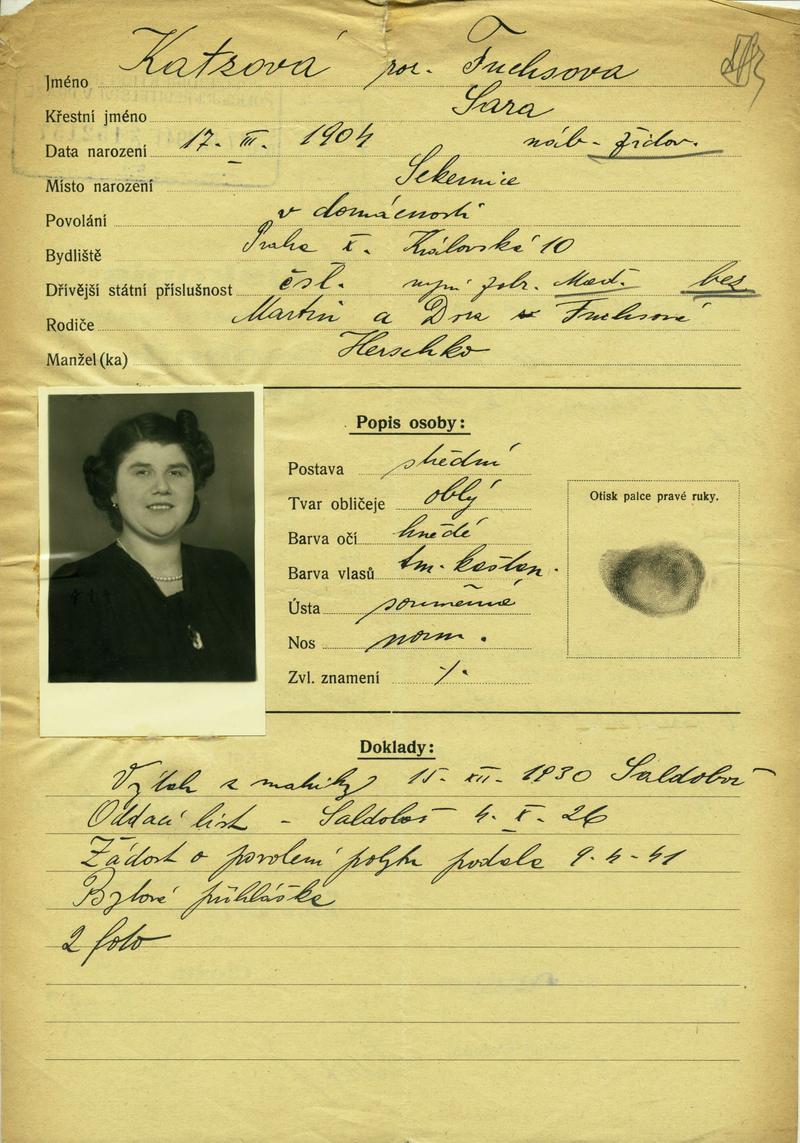 Jméno Katzová roz. Fuchsova
Křestní jméno Sara
Data narození 17. III. 1904 náb. židov.
Místo narození Sekernice
Povolání v domácnosti
Bydliště Praha X. Královská 10
Dřívější státní příslušnost čsl. nyní bez
Rodiče Martin a Dora Fuchsová
Manžel(ka) Herschko
Popis osoby:
Postava střední
Tvar obličeje oblý
Barva očí hnědé
Barva vlasů tm. kaštan.
Ústa souměrné
Nos norm.
Zvl. znamení ·/·
Otisk palce pravé ruky.
Doklady:
Výtah z matriky 15. XII. 1930 Saldoboš
Oddací list - Saldoboš 4. X. 26
Žádost o povolení pobytu podala 9-4-41
Bytová přihláška
2 foto